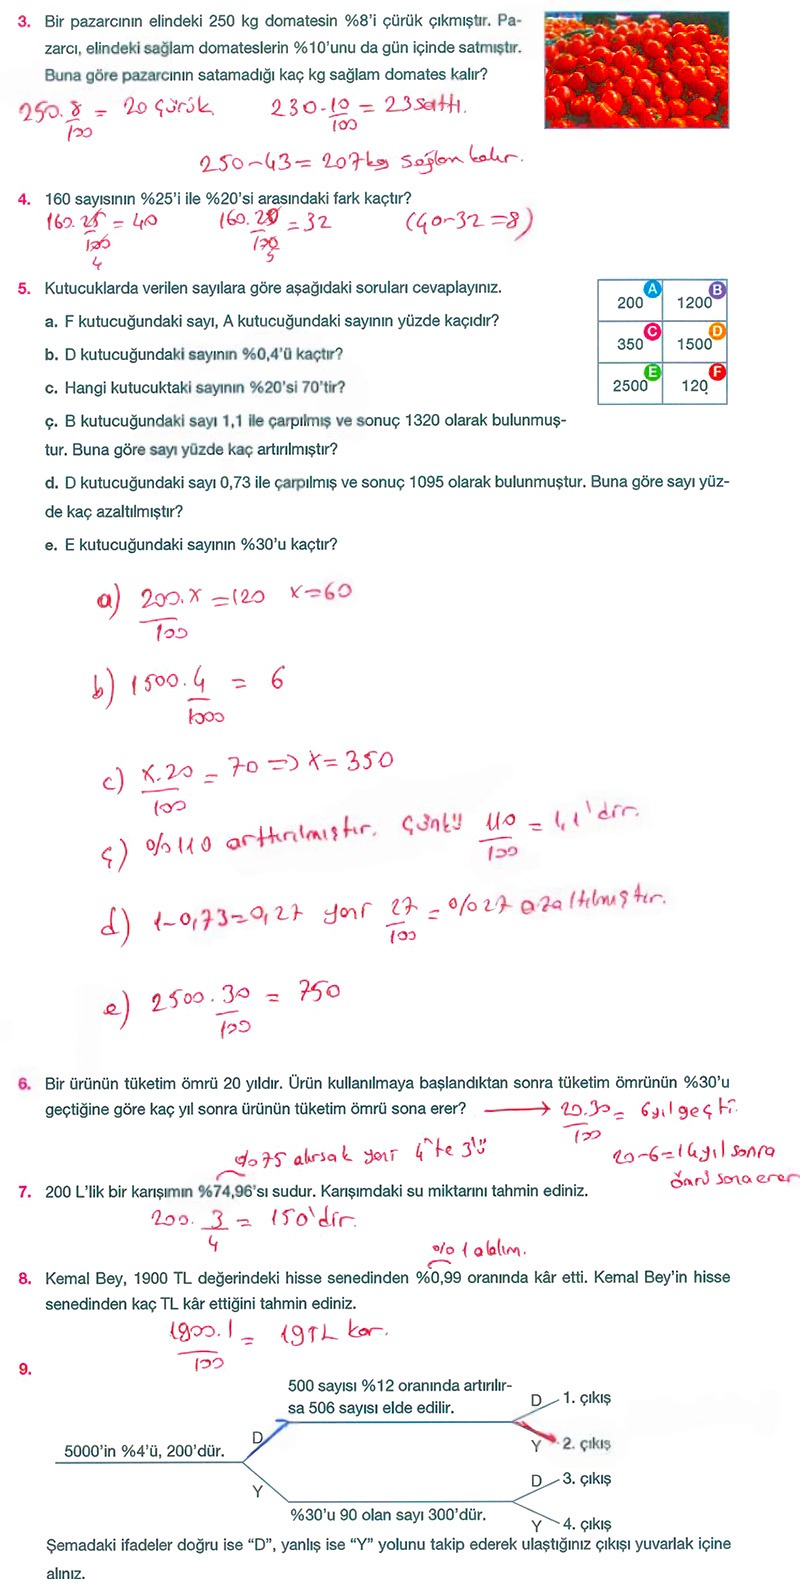 3. Bir pazarcının elindeki 250 kg domatesin %8'i çürük çıkmıştır. Pa-
zarcı, elindeki sağlam domateslerin %10'unu da gün içinde satmıştır.
Buna göre pazarcının satamadığı kaç kg sağlam domates kalır?
250.8/100 = 20 çürük 230.10/100 = 23 sattı.
250-43=207kg sağlam kalır.
4. 160 sayısının %25'i ile %20'si arasındaki fark kaçtır?
160.25/100 = 40 160.20/100 = 32 (40-32=8)
4 5
5. Kutucuklarda verilen sayılara göre aşağıdaki soruları cevaplayınız.
A 200 B 1200
C 350 D 1500
E 2500 F 120
a. F kutucuğundaki sayı, A kutucuğundaki sayının yüzde kaçıdır?
b. D kutucuğundaki sayının %0,4'ü kaçtır?
c. Hangi kutucuktaki sayının %20'si 70'tir?
ç. B kutucuğundaki sayı 1,1 ile çarpılmış ve sonuç 1320 olarak bulunmuş-
tur. Buna göre sayı yüzde kaç artırılmıştır?
d. D kutucuğundaki sayı 0,73 ile çarpılmış ve sonuç 1095 olarak bulunmuştur. Buna göre sayı yüz-
de kaç azaltılmıştır?
e. E kutucuğundaki sayının %30'u kaçtır?
a) 200.x/100 = 120 x=60
b) 1500.4/1000 = 6
c) x.20/100 = 70 => x=350
ç) %110 arttırılmıştır. Çünkü 110/100 = 1,1'dir.
d) 1-0,73=0,27 yani 27/100 = %27 azaltılmıştır.
e) 2500.30/100 = 750
6. Bir ürünün tüketim ömrü 20 yıldır. Ürün kullanılmaya başlandıktan sonra tüketim ömrünün %30'u
geçtiğine göre kaç yıl sonra ürünün tüketim ömrü sona erer? → 20.30/100 = 6 yıl geçti.
20-6=14 yıl sonra
ömrü sona erer
%75 alırsak yani 4'te 3'ü
7. 200 L'lik bir karışımın %74,96'sı sudur. Karışımdaki su miktarını tahmin ediniz.
200.3/4 = 150'dir.
%1 alalım.
8. Kemal Bey, 1900 TL değerindeki hisse senedinden %0,99 oranında kâr etti. Kemal Bey'in hisse
senedinden kaç TL kâr ettiğini tahmin ediniz.
1900.1/100 = 19TL kar.
9.
500 sayısı %12 oranında artırılır-
sa 506 sayısı elde edilir.
D 1. çıkış
D
Y 2. çıkış
5000'in %4'ü, 200'dür.
D 3. çıkış
Y
%30'u 90 olan sayı 300'dür.
Y 4. çıkış
Şemadaki ifadeler doğru ise “D”, yanlış ise “Y” yolunu takip ederek ulaştığınız çıkışı yuvarlak içine
alınız.